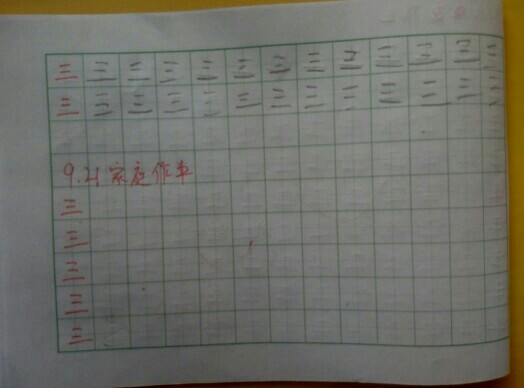 三三三三三三三三三三三三三
三三三三三三三三三三三三三
9.21家庭作业
三
三
三
三
三